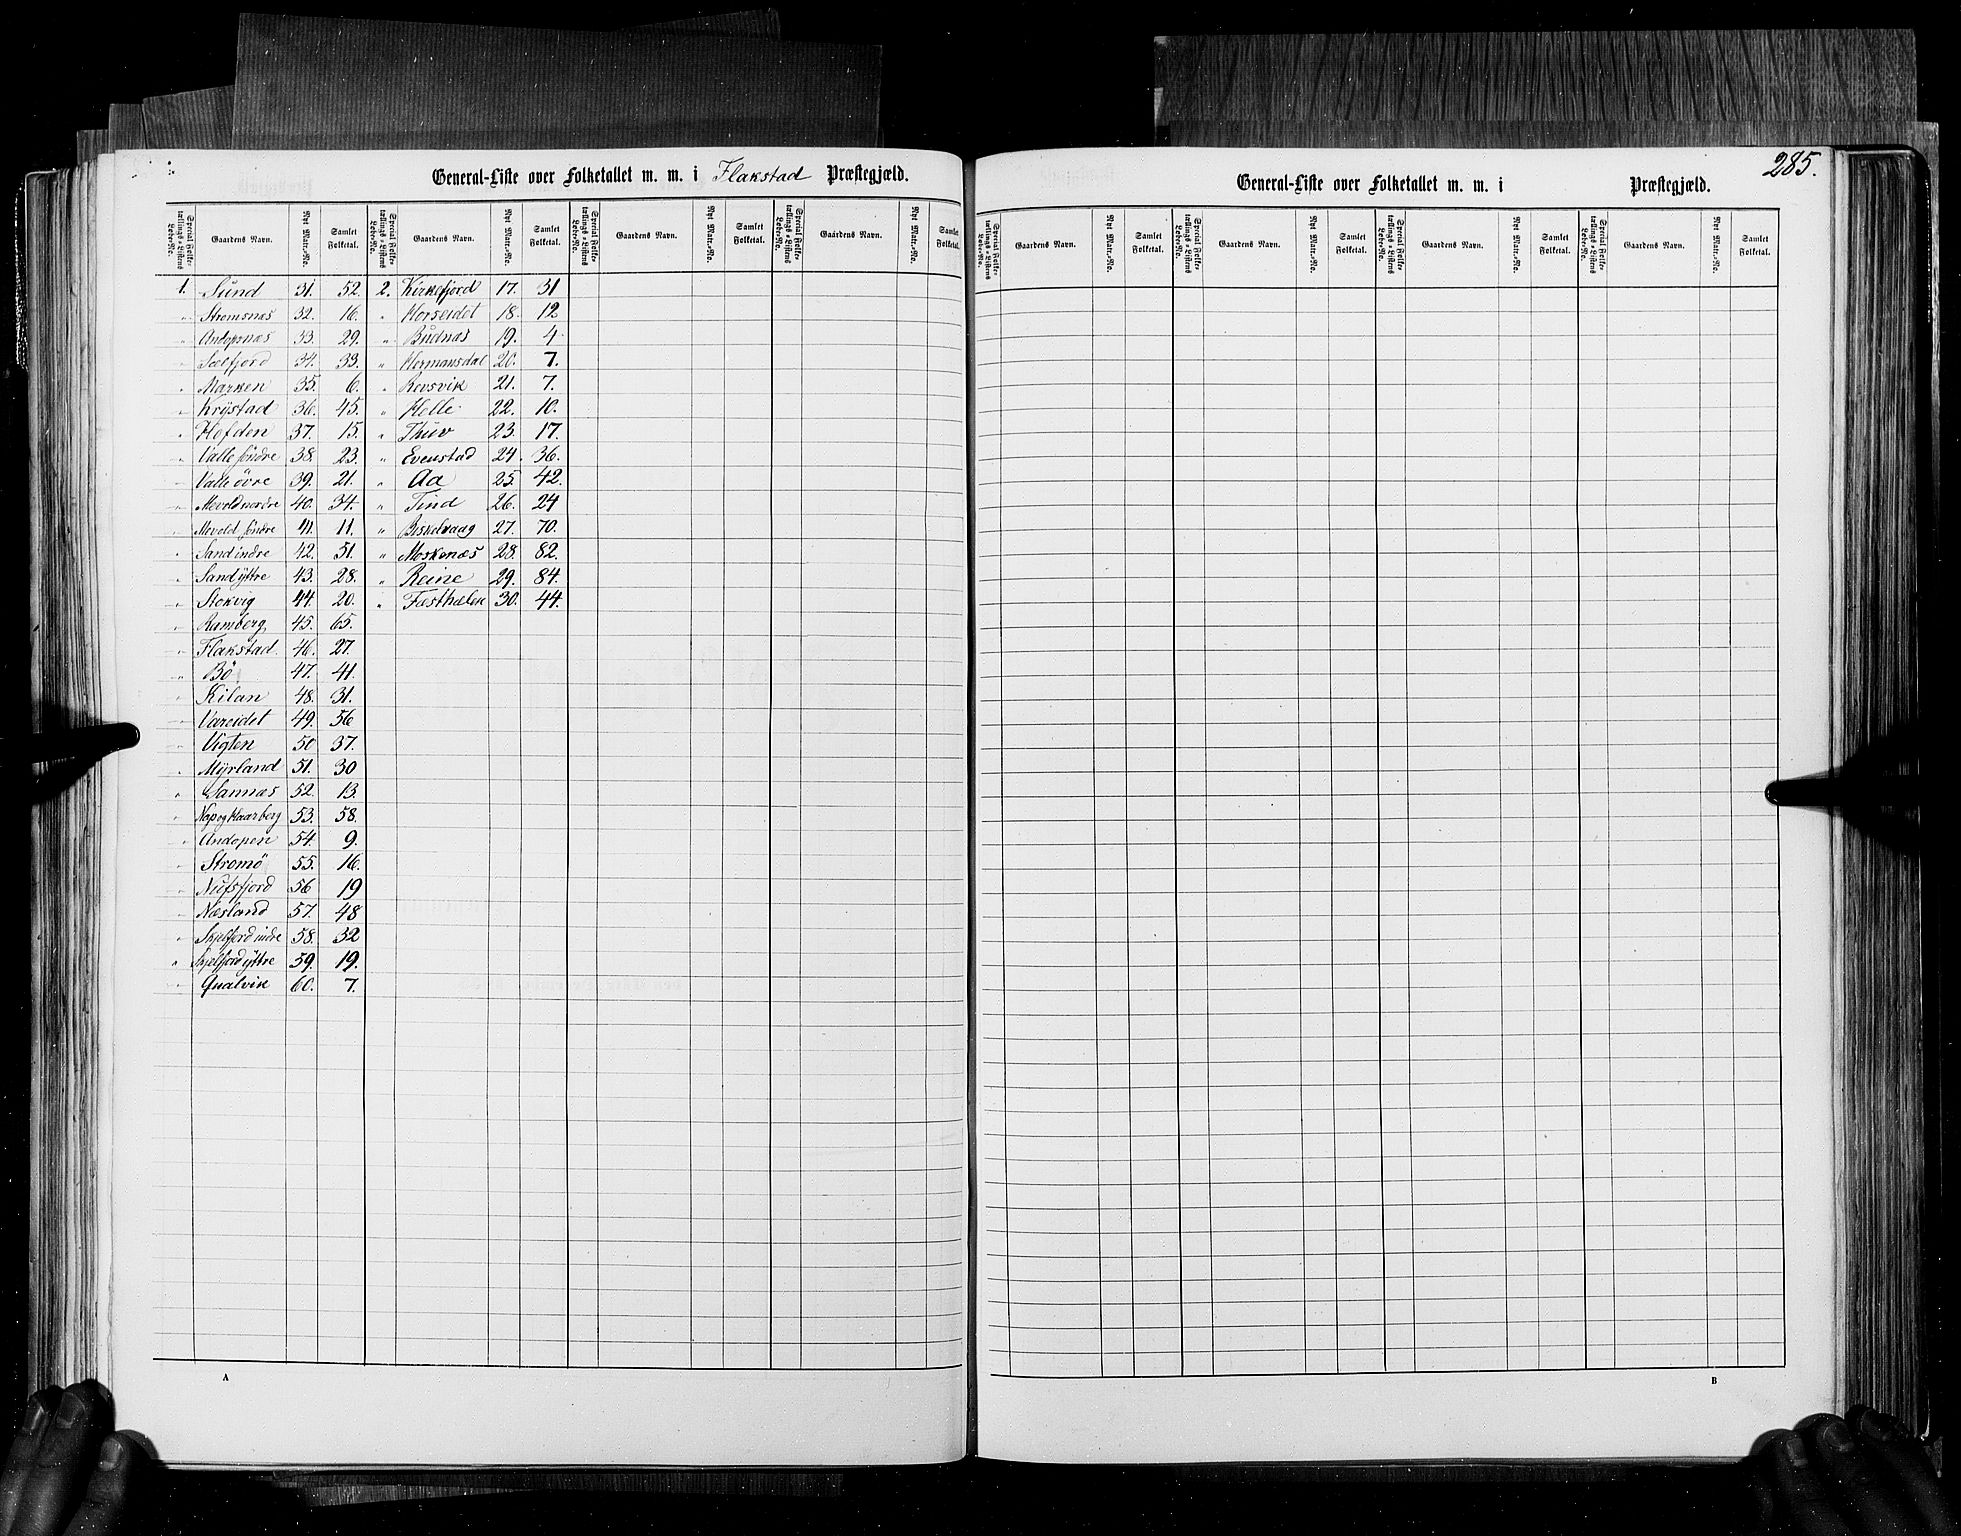 General-Liste over Folketallet m. m. i Flakstad Præstegjæld.
Special Folketællings-Listens Løbe-No. Gaardens Navn. Nyt Matr.-No. Samlet Folketal. Special Folketællings-Listens Løbe-No. Gaardens Navn. Nyt Matr.-No. Samlet Folketal. Special Folketællings-Listens Løbe-No. Gaardens Navn. Nyt Matr.-No. Samlet Folketal. Special Folketællings-Listens Løbe-No. Gaardens Navn. Nyt Matr.-No. Samlet Folketal.
1. Sund 31. 52. 2. Kirkefjord 17. 31
" Strømsnæs 32. 16. " Horseidet 18. 12
" Andopsnæs 33. 29. " Budnæs 19. 4
" Soelfjord 34. 33. " Hermansdal 20. 7.
" Marken 35. 6. " Revsvik 21. 7.
" Krystad 36. 45. " Helle 22. 10.
" Hofden 37. 15. " Thuv 23. 17.
" Valle søndre 38. 23. " Evenstad 24. 36.
" Valle övre 39. 21. " Aa 25. 42.
" Mevold nordre 40. 34. " Tind 26. 24
" Mevold söndre 41. 11. " 27. 70.
" Sand indre 42. 51. " Moskenæs 28. 82.
" Sand yttre 43. 28. " Reine 29. 84.
" Stokvig 44. 20. " 30. 44.
" Ramberg 45. 65.
" Flakstad. 46. 27.
" Bö 47. 41.
" Kilan 48. 31.
" Vareidet 49. 56
" Vigten 50 37.
" Myrland 51. 30
" Sannæs 52. 13.
" Nap og Kaarberg 53. 58.
" Andopen 54. 9.
" Stromö 55. 16.
" Nufsfjord 56 19
" Næsland 57. 48
" Skjelfjord indre 58. 32
" Skjelfjord yttre 59. 19.
" Qualvik 60. 7.
A
285.
General-Liste over Folketallet m. m. i Præstegjæld.
Special Folketællings-Listens Løbe-No. Gaardens Navn. Nyt Matr.-No. Samlet Folketal. Special Folketællings-Listens Løbe-No. Gaardens Navn. Nyt Matr.-No. Samlet Folketal. Special Folketællings-Listens Løbe-No. Gaardens Navn. Nyt Matr.-No. Samlet Folketal. Special Folketællings-Listens Løbe-No. Gaardens Navn. Nyt Matr.-No. Samlet Folketal.
B